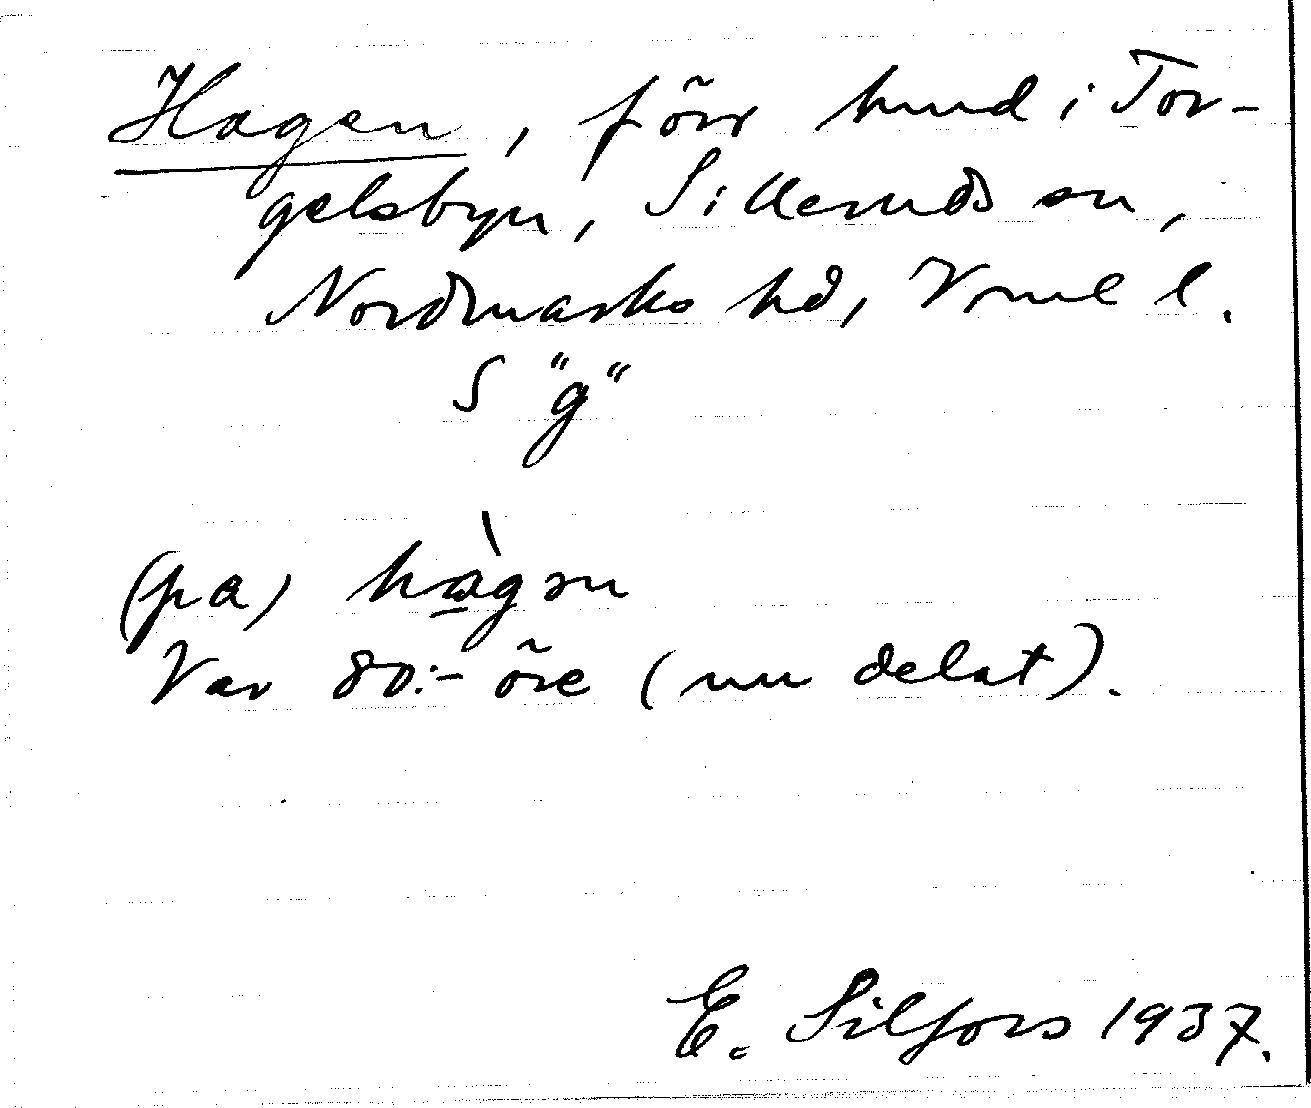 Hagen, förr hmd i Tor-
gelsbyn, Silleruds sn,
Nordmarks hd, Vrml l.
S "g"
(pa) hàgən
Var 80:- öre (nu delat).
E. Silfors 1937.